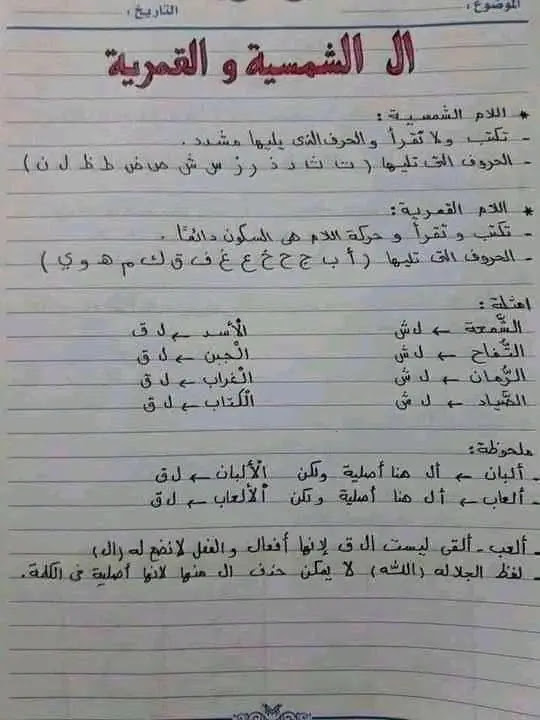 الموضوع: التاريخ:
ال الشمسية و القمرية
* اللام الشمسية:
- تكتب ولا تقرأ والحرف الذى يليها مشدد.
- الحروف التى تليها (ت ث د ذ ر ز س ش ص ض ط ظ ل ن)
* اللام القمرية:
- تكتب و تقرأ و حركة اللام هى السكون دائمًا.
- الحروف التى تليها (أ ب ج ح خ ع غ ف ق ك م هـ و ي)
امثلة:
الشَّمعة ← ل ش الْأسد ← ل ق
التُّفاح ← ل ش الْجبن ← ل ق
الرُّمان ← ل ش الْغراب ← ل ق
الصَّياد ← ل ش الْكتاب ← ل ق
ملحوظة:
- ألبان ← أل هنا أصلية ولكن الْألبان ← ل ق
- ألعاب ← أل هنا أصلية ولكن الْألعاب ← ل ق
- ألعب - ألقى ليست ال ق لإنها أفعال والفعل لانضع له (ال)
- لفظ الجلاله (الله) لا يمكن حذف ال منها لانها أصلية فى الكلمة.